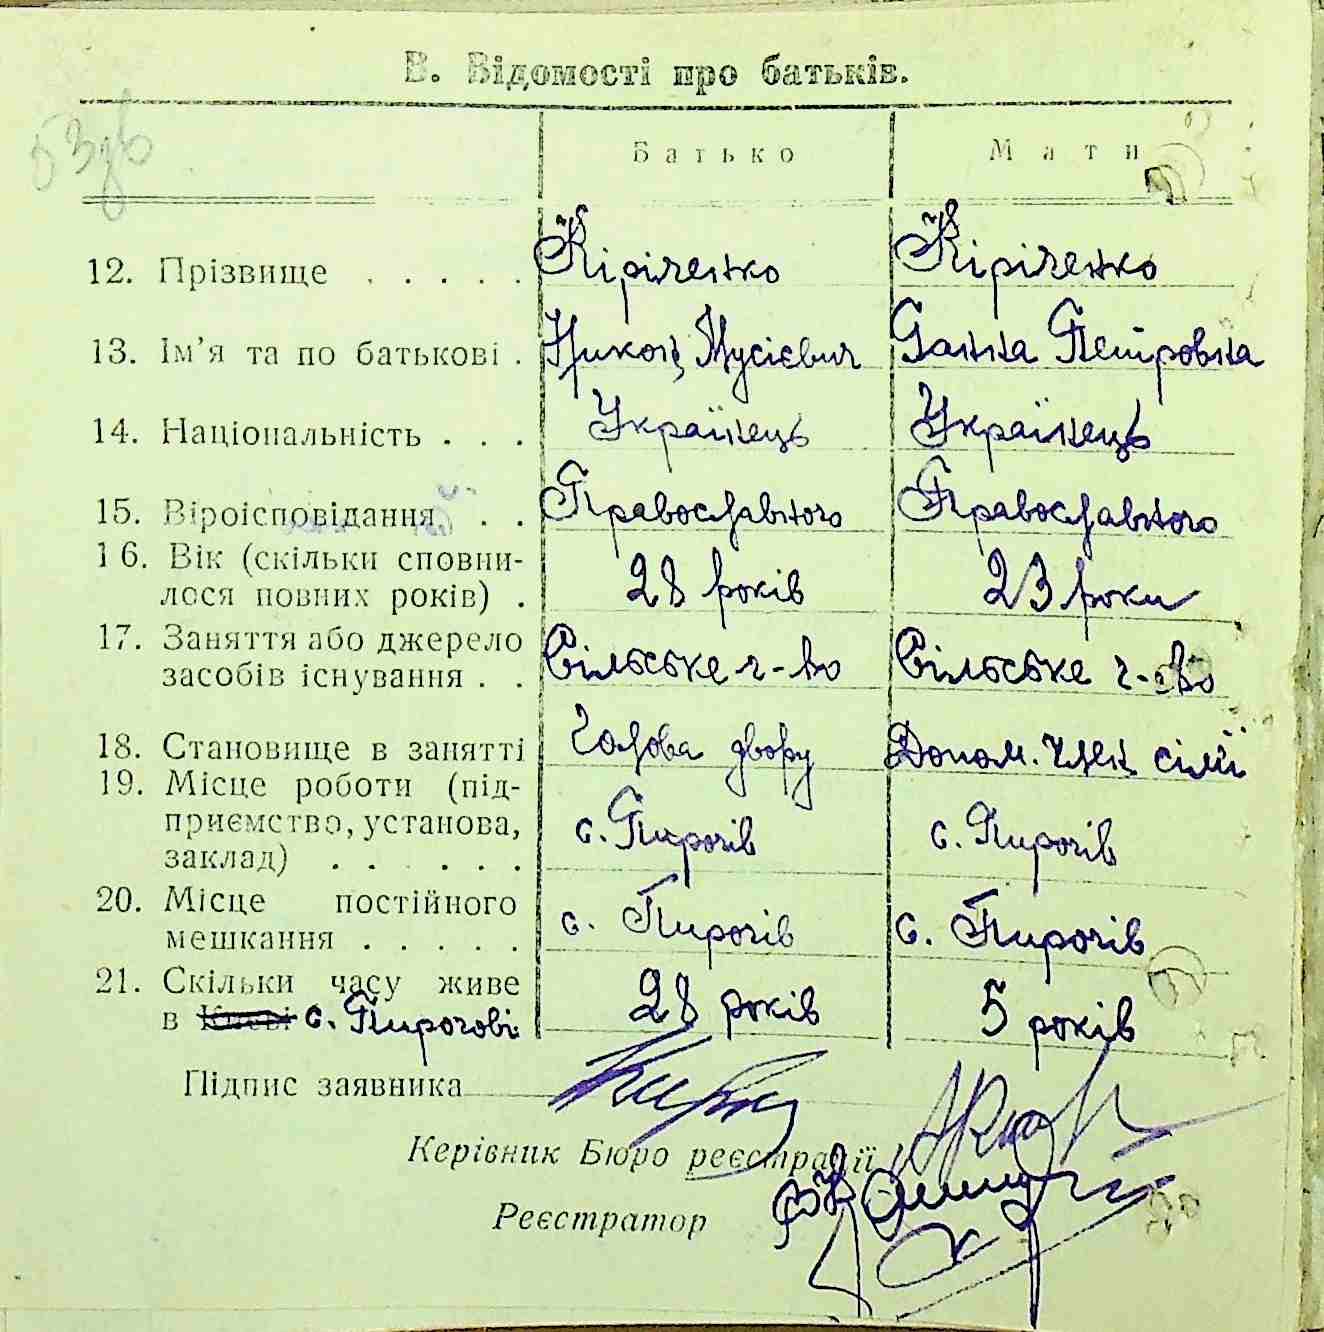 В. Відомості про батьків.
Батько Мати
12. Прізвище . . . . . Кіріченко Кіріченко
13. Ім'я та по батькові . Никон Мусієвич Ганна Петровна
14. Національність . . . Українець Українець
15. Віроісповідання . . Православного Православного
16. Вік (скільки сповни-
лося повних років) . 28 років 23 роки
17. Заняття або джерело
засобів існування . . Сільське г-во Сільське г-во
18. Становище в занятті Голова двору Допом. член сімї
19. Місце роботи (під-
приємство, установа,
заклад) . . . . . с. Пирогів с. Пирогів
20. Місце постійного
мешкання . . . . . с. Пирогів с. Пирогів
21. Скільки часу живе
в Києві с. Пирогові 28 років 5 років
Підпис заявника
Керівник Бюро реєстрації
Реєстратор